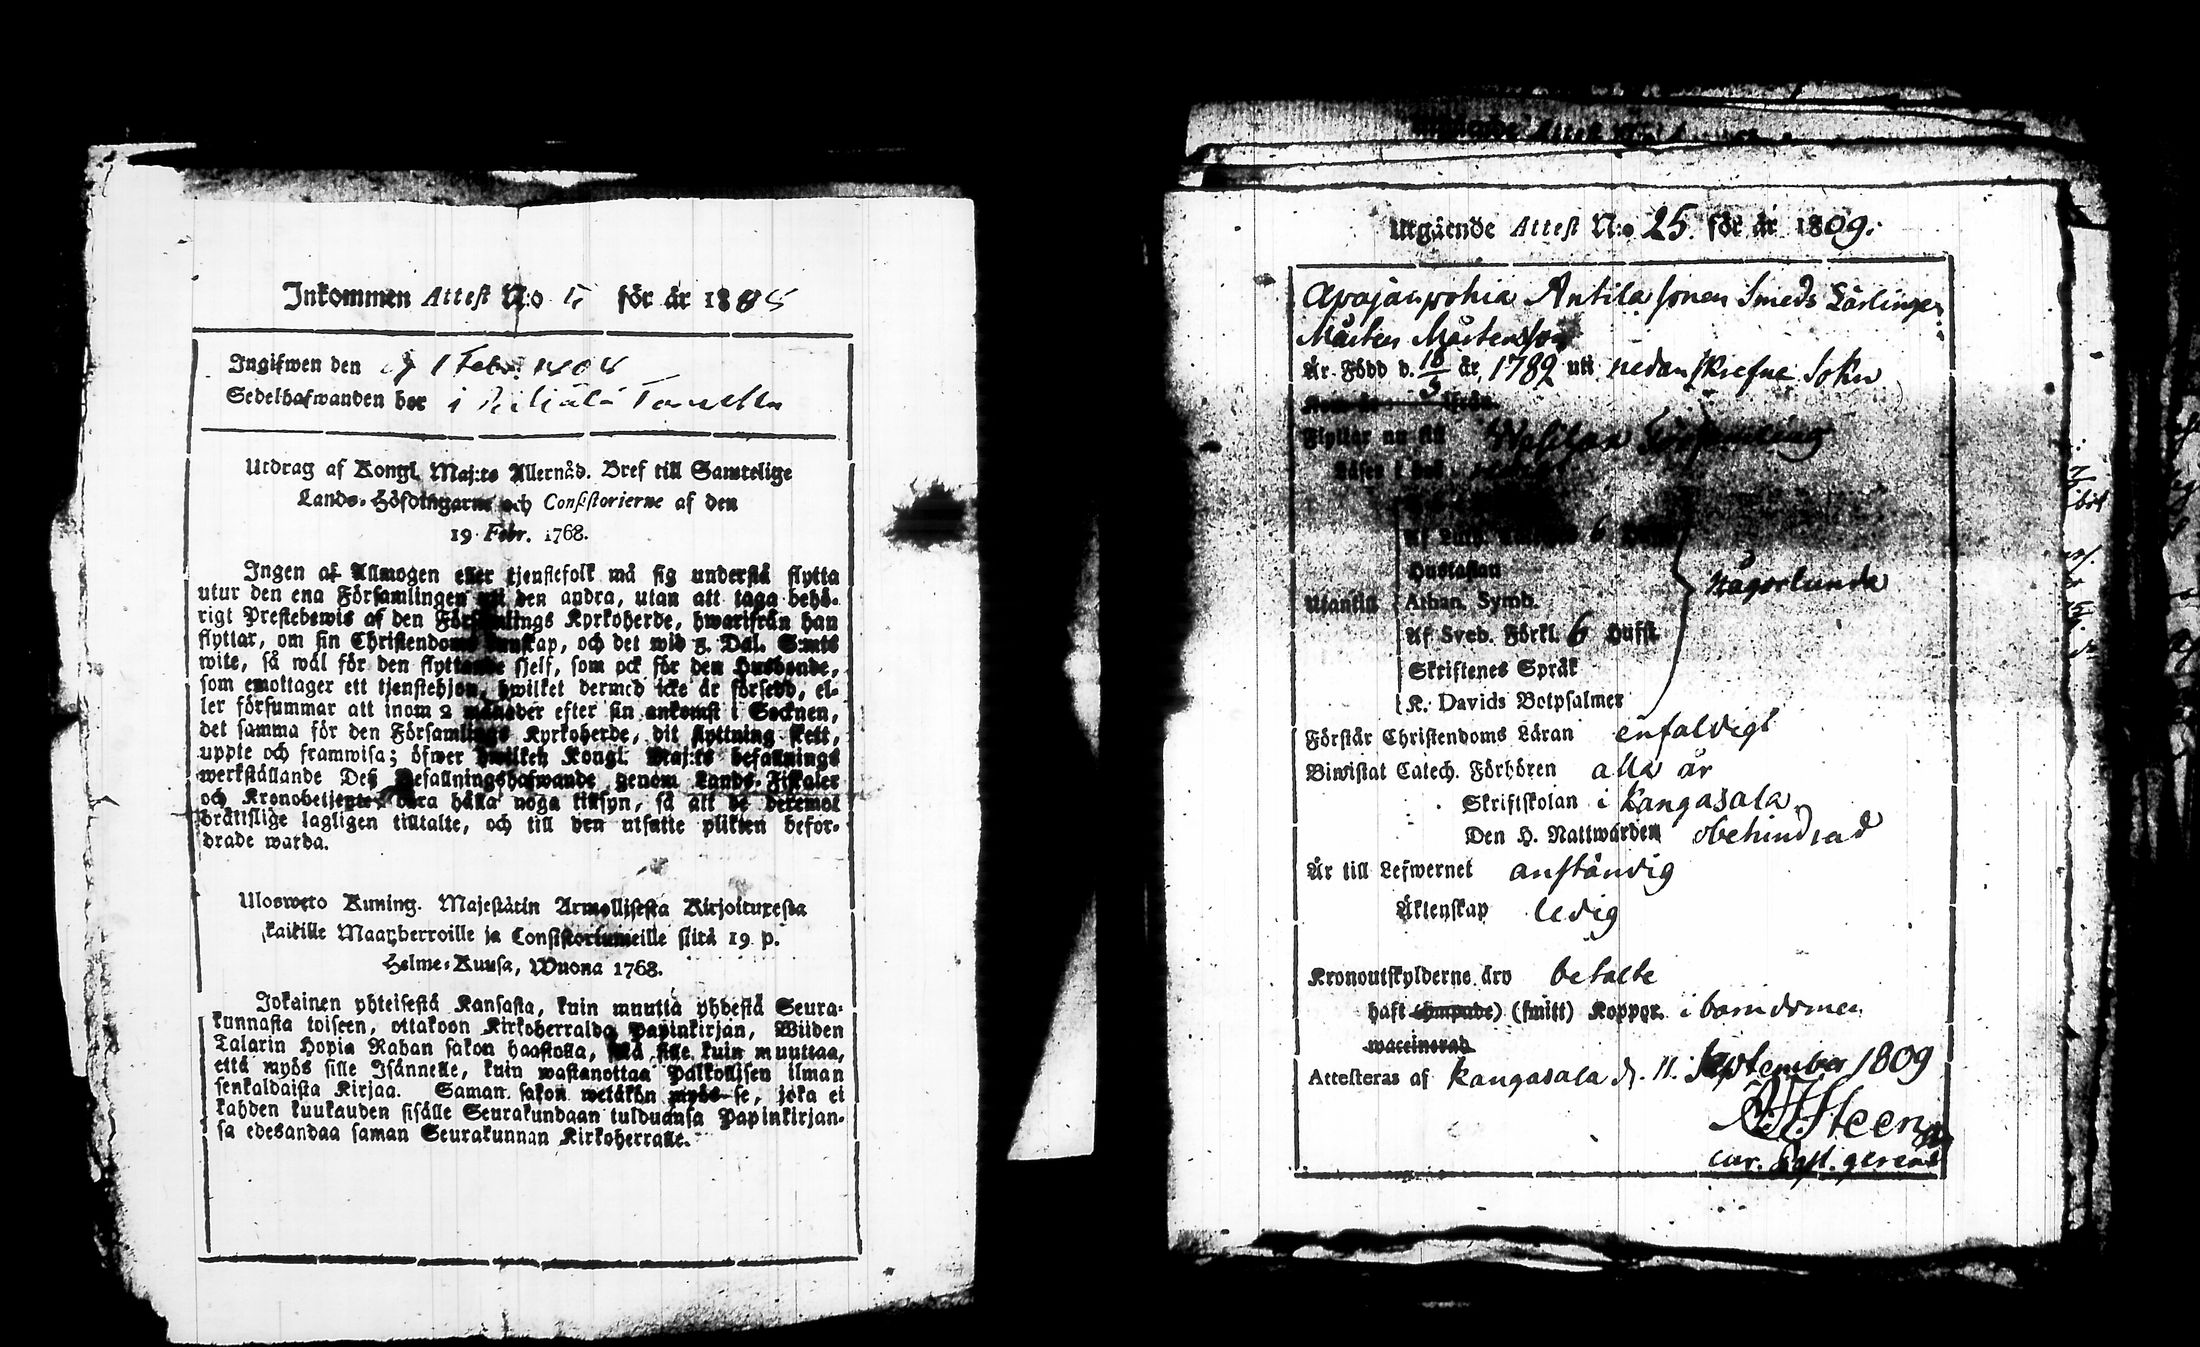 Inkommen Attest N:o 5 för år 18
Ingifwen den 1 Feb.
Sedelhafwanden bor i
Utdrag af Kongl. Maj:ts Allernåd. Bref till Samtelige
Lands-Höfdingarne och Consistorierne af den
19 Febr. 1768.
Ingen af Allmogen eller tjenstefolk må sig understå flytta
utur den ena Församlingen uti den andra, utan att taga behö-
rigt Prestebewis af den Församlings Kyrkoherde, hwarifrån han
flyttar, om sin Christendoms kunskap, och det wid 5. Dal. S:mts
wite, så wäl för den flyttande sjelf, som ock för den Husbonde,
som emottager ett tjenstehjon, hwilket dermed icke är försedd, el-
ler försummar att inom 2 månader efter sin ankomst i Socknen,
det samma för den Församlings Kyrkoherde, dit flyttning skett,
uppte och framwisa; öfwer hwilken Kongl. Maj:ts befallnings
werkställande Deß Befallningshafwande genom Lands-Fiskaler
och Kronobetjente böra hålla noga tillsyn, så att de deremot
brättslige lagligen tilltalte, och till den utsatte plikten befor-
drade warda.
Ulosweto Kuning. Majestätin Armollisesta Kirjoituxesta
kaikille Maanherroille ja Consistoriumeille siitä 19 p.
Helme-Kuusa, Wuona 1768.
Jokainen yhteisestä Kansasta, kuin muutta yhdestä Seura-
kunnasta toiseen, ottakoon Kirkoherralda Papinkirjan, Wiiden
Talarin Hopia Rahan sakon haastolla, sekä sille kuin muuttaa,
että myös sille Isännelle, kuin wastanottaa Palkollisen ilman
senkaldaista Kirjaa. Saman sakon wetäkön myös se, joka ei
kahden kuukauden sisälle Seurakundaan tulduansa Papinkirjan-
sa edesandaa saman Seurakunnan Kirkoherralle.
Utgående Attest N:o 25. för år 1809.
Antila sonen Smeds Lärlingen
Mårten Mårtensson
Är Född d. 18/3 år 1789 uti nedanskrefne Sokn
Flyttar nu till Församling
Läser i bok
Af Luth. Catech. 6
Hustaflan
Utantill Athan. Symb. Någorlunda
Af Sveb. Förkl. 6 Hufst.
Skriftenes Språk
K. Davids Botpsalmer
Förstår Christendoms Läran enfaldigt
Biwistat Catech. Förhören alla år
Skriftskolan i Kangasala
Den H. Nattwarden obehindrad
Är till Lefwernet anständig
Äktenskap ledig
Kronoutskylderne äro betalte
haft (ympade) (smitt) Koppor i barndomen
waccinerad
Attesteras af Kangasala d. 11. September 1809
Steen
cur. Past. gerens